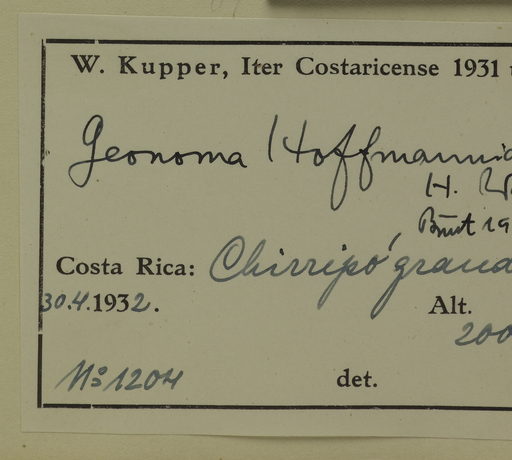 W. Kupper, Iter Costaricense 1931
Geonoma Hoffmannia
H.
19
Costa Rica: Chirripó grand
30.4.1932.
Alt.
200
No 1204
det.